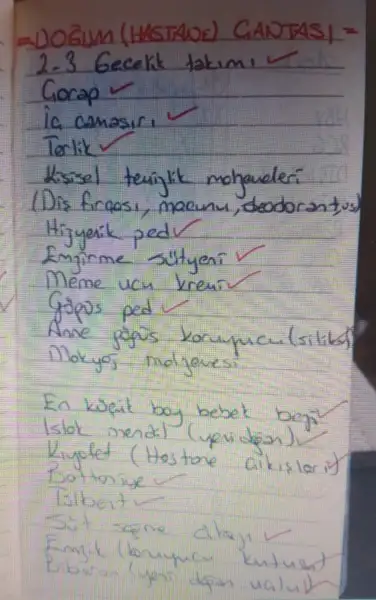 =DOĞUM (HASTANE) ÇANTASI=
2-3 Gecelik takımı ✓
Çorap ✓
İç çamaşırı ✓
Terlik ✓
Kişisel temizlik malzemeleri
(Diş fırçası, macunu, deodorant, vs)
Hijyenik ped ✓
Emzirme sütyeni ✓
Meme ucu kremi ✓
Göğüs ped ✓
Anne göğüs koruyucu (silikon)
Makyaj malzemesi
En küçük boy bebek bezi ✓
Islak mendil (yenidoğan) ✓
Kıyafet (Hastane çıkışları) ✓
Battaniye ✓
Tülbent ✓
Süt sağma cihazı ✓
Emzik (koruyucu kutusu) ✓
Biberon (yeni doğan